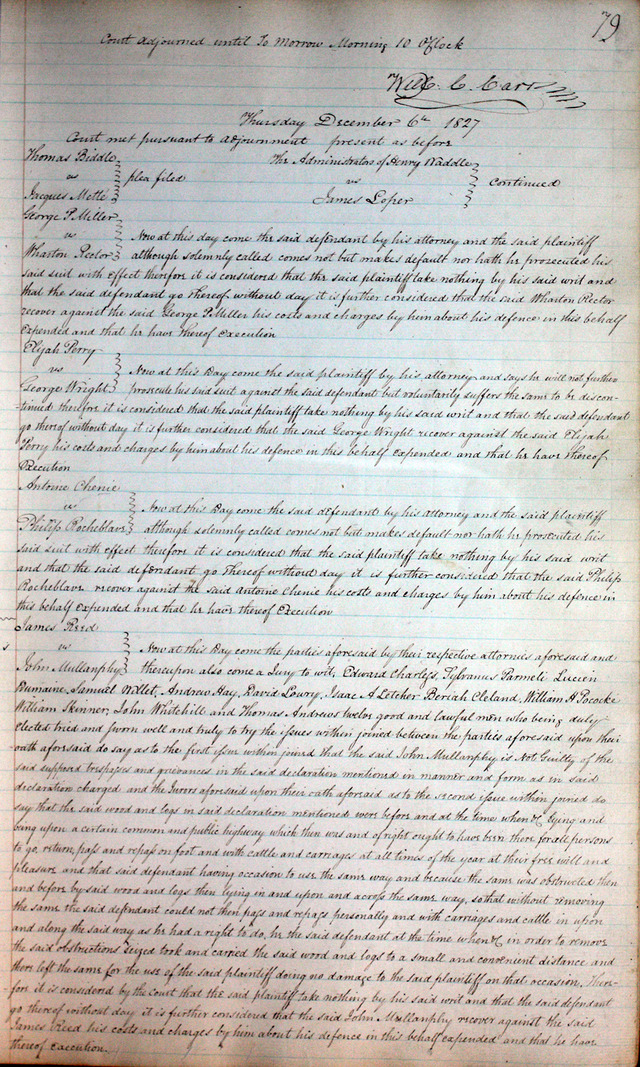 79
Court adjourned until To Morrow Morning 10 O'Clock
Will. C. Carr
Thursday December 6th 1827
Court met pursuant to adjournment present as before
Thomas Biddle
vs plea filed
Jacques Metté
The Administrators of Henry Waddle
vs Continued
James Loper
George P. Miller
vs Now at this day come the said defendant by his attorney and the said plaintiff
Wharton Rector although solemnly called comes not but makes default nor hath he prosecuted his
said suit with effect therefore it is considered that the said plaintiff take nothing by his said writ and
that the said defendant go thereof without day it is further considered that the said Wharton Rector
recover against the said George P. Miller his costs and charges by him about his defence in this behalf
expended and that he have thereof execution
Elijah Perry
vs Now at this Day come the said plaintiff by his attorney and says he will not further
George Wright prosecute his said suit against the said defendant but voluntarily suffers the same to be discon-
-tinued therefore it is considered that the said plaintiff take nothing by his said writ and that the said defendant
go thereof without day it is further considered that the said George Wright recover against the said Elijah
Perry his costs and charges by him about his defence in this behalf expended and that he have thereof
Execution
Antoine Chenie
vs Now at this Day come the said defendant by his attorney and the said plaintiff
Philip Rocheblave although solemnly called comes not but makes default nor hath he prosecuted his
said suit with effect therefore it is considered that the said plaintiff take nothing by his said writ
and that the said defendant go thereof without day it is further considered that the said Philip
Rocheblave recover against the said Antoine Chenie his costs and charges by him about his defence in
this behalf expended and that he have thereof Execution
James Reed
vs Now at this Day come the parties aforesaid by their respective attornies aforesaid and
John Mullanphy thereupon also come a Jury to wit, Edward Charless, Sylvanus Parmeli Lucien
Dumaine, Samuel Willet, Andrew Hay, David Lowry, Isaac A Letcher Beriah Cleland, William H Pococke
William Skinner, John Whitehill and Thomas Andrews twelve good and lawful men who being duly
elected tried and sworn well and truly to try the issues within joined between the parties aforesaid upon their
oath aforesaid do say as to the first issue within joined that the said John Mullanphy is Not Guilty of the
said supposed trespasses and grievances in the said declaration mentioned in manner and form as in said
declaration charged and the Jurors aforesaid upon their oath aforeaid as to the second issue within joined do
say that the said wood and logs in said declaration mentioned were before and at the time when &c lying and
being upon a certain common and public highway which then was and of right ought to have been there for all persons
to go, return, pass and repass on foot and with cattle and carriages at all times of the year at their free will and
pleasure and that said defendant having occasion to use the same way and because the same was obstructed then
and before by said wood and logs then lying in and upon and across the same way, so that without removing
the same the said defendant could not then pass and repass personally and with carriages and cattle in upon
and along the said way as he had a right to do, he the said defendant at the time when &c in order to remove
the said obstructions seized took and carried the said wood and logs to a small and convenient distance and
there left the same for the use of the said plaintiff doing no damage to the said plaintiff on that occasion, There-
fore it is considered by the court that the said plaintiff take nothing by his said writ and that the said defendant
go thereof without day it is further considered that the said John Mullanphy recover against the said
James Reed his costs and charges by him about his defence in this behalf expended and that he have
thereof execution.